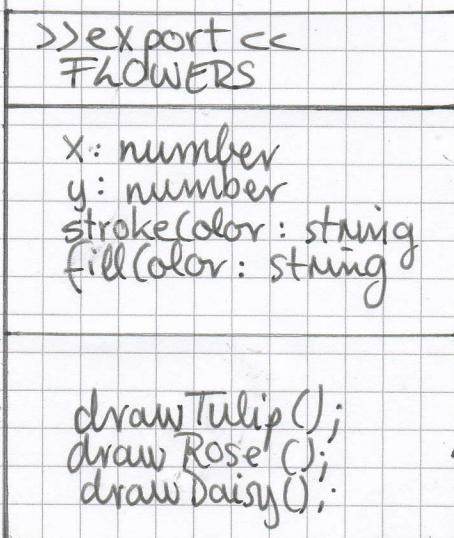 >>export<<
FLOWERS
x: number
y: number
strokeColor: string
fillColor: string
drawTulip();
drawRose();
drawDaisy();